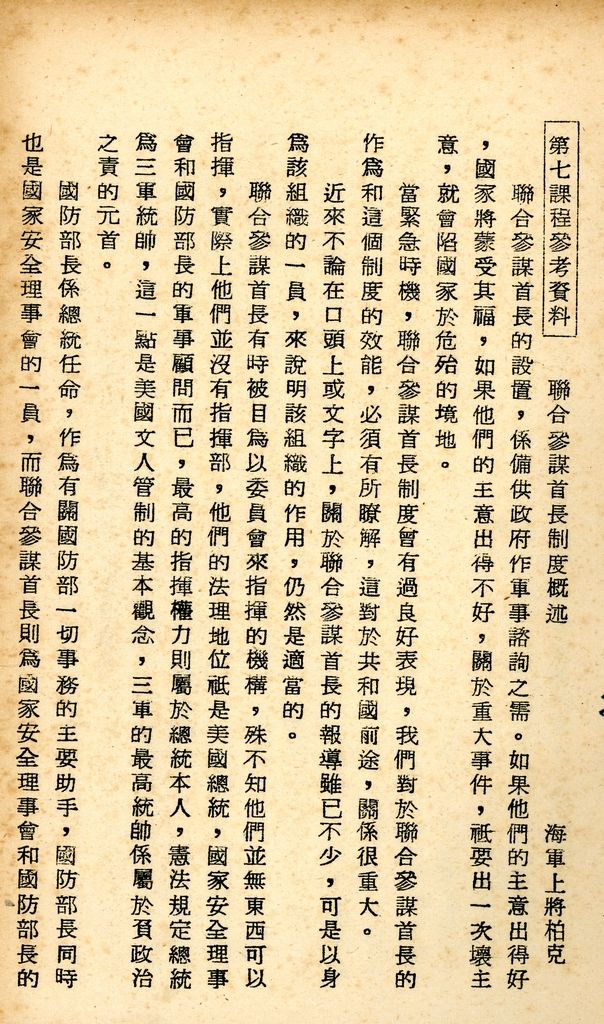 第七課程參考資料　聯合參謀首長制度概述　海軍上將柏克
聯合參謀首長的設置，係備供政府作軍事諮詢之需。如果他們的主意出得好
，國家將蒙受其福，如果他們的主意出得不好，關於重大事件，祗要出一次壞主
意，就會陷國家於危殆的境地。
當緊急時機，聯合參謀首長制度曾有過良好表現，我們對於聯合參謀首長的
作爲和這個制度的效能，必須有所瞭解，這對於共和國前途，關係很重大。
近來不論在口頭上或文字上，關於聯合參謀首長的報導雖已不少，可是以身
爲該組織的一員，來說明該組織的作用，仍然是適當的。
聯合參謀首長有時被目爲以委員會來指揮的機構，殊不知他們並無東西可以
指揮，實際上他們並沒有指揮部，他們的法理地位祗是美國總統，國家安全理事
會和國防部長的軍事顧問而已，最高的指揮權力則屬於總統本人，憲法規定總統
爲三軍統帥，這一點是美國文人管制的基本觀念，三軍的最高統帥係屬於負政治
之責的元首。
國防部長係總統任命，作爲有關國防部一切事務的主要助手，國防部長同時
也是國家安全理事會的一員，而聯合參謀首長則爲國家安全理事會和國防部長的